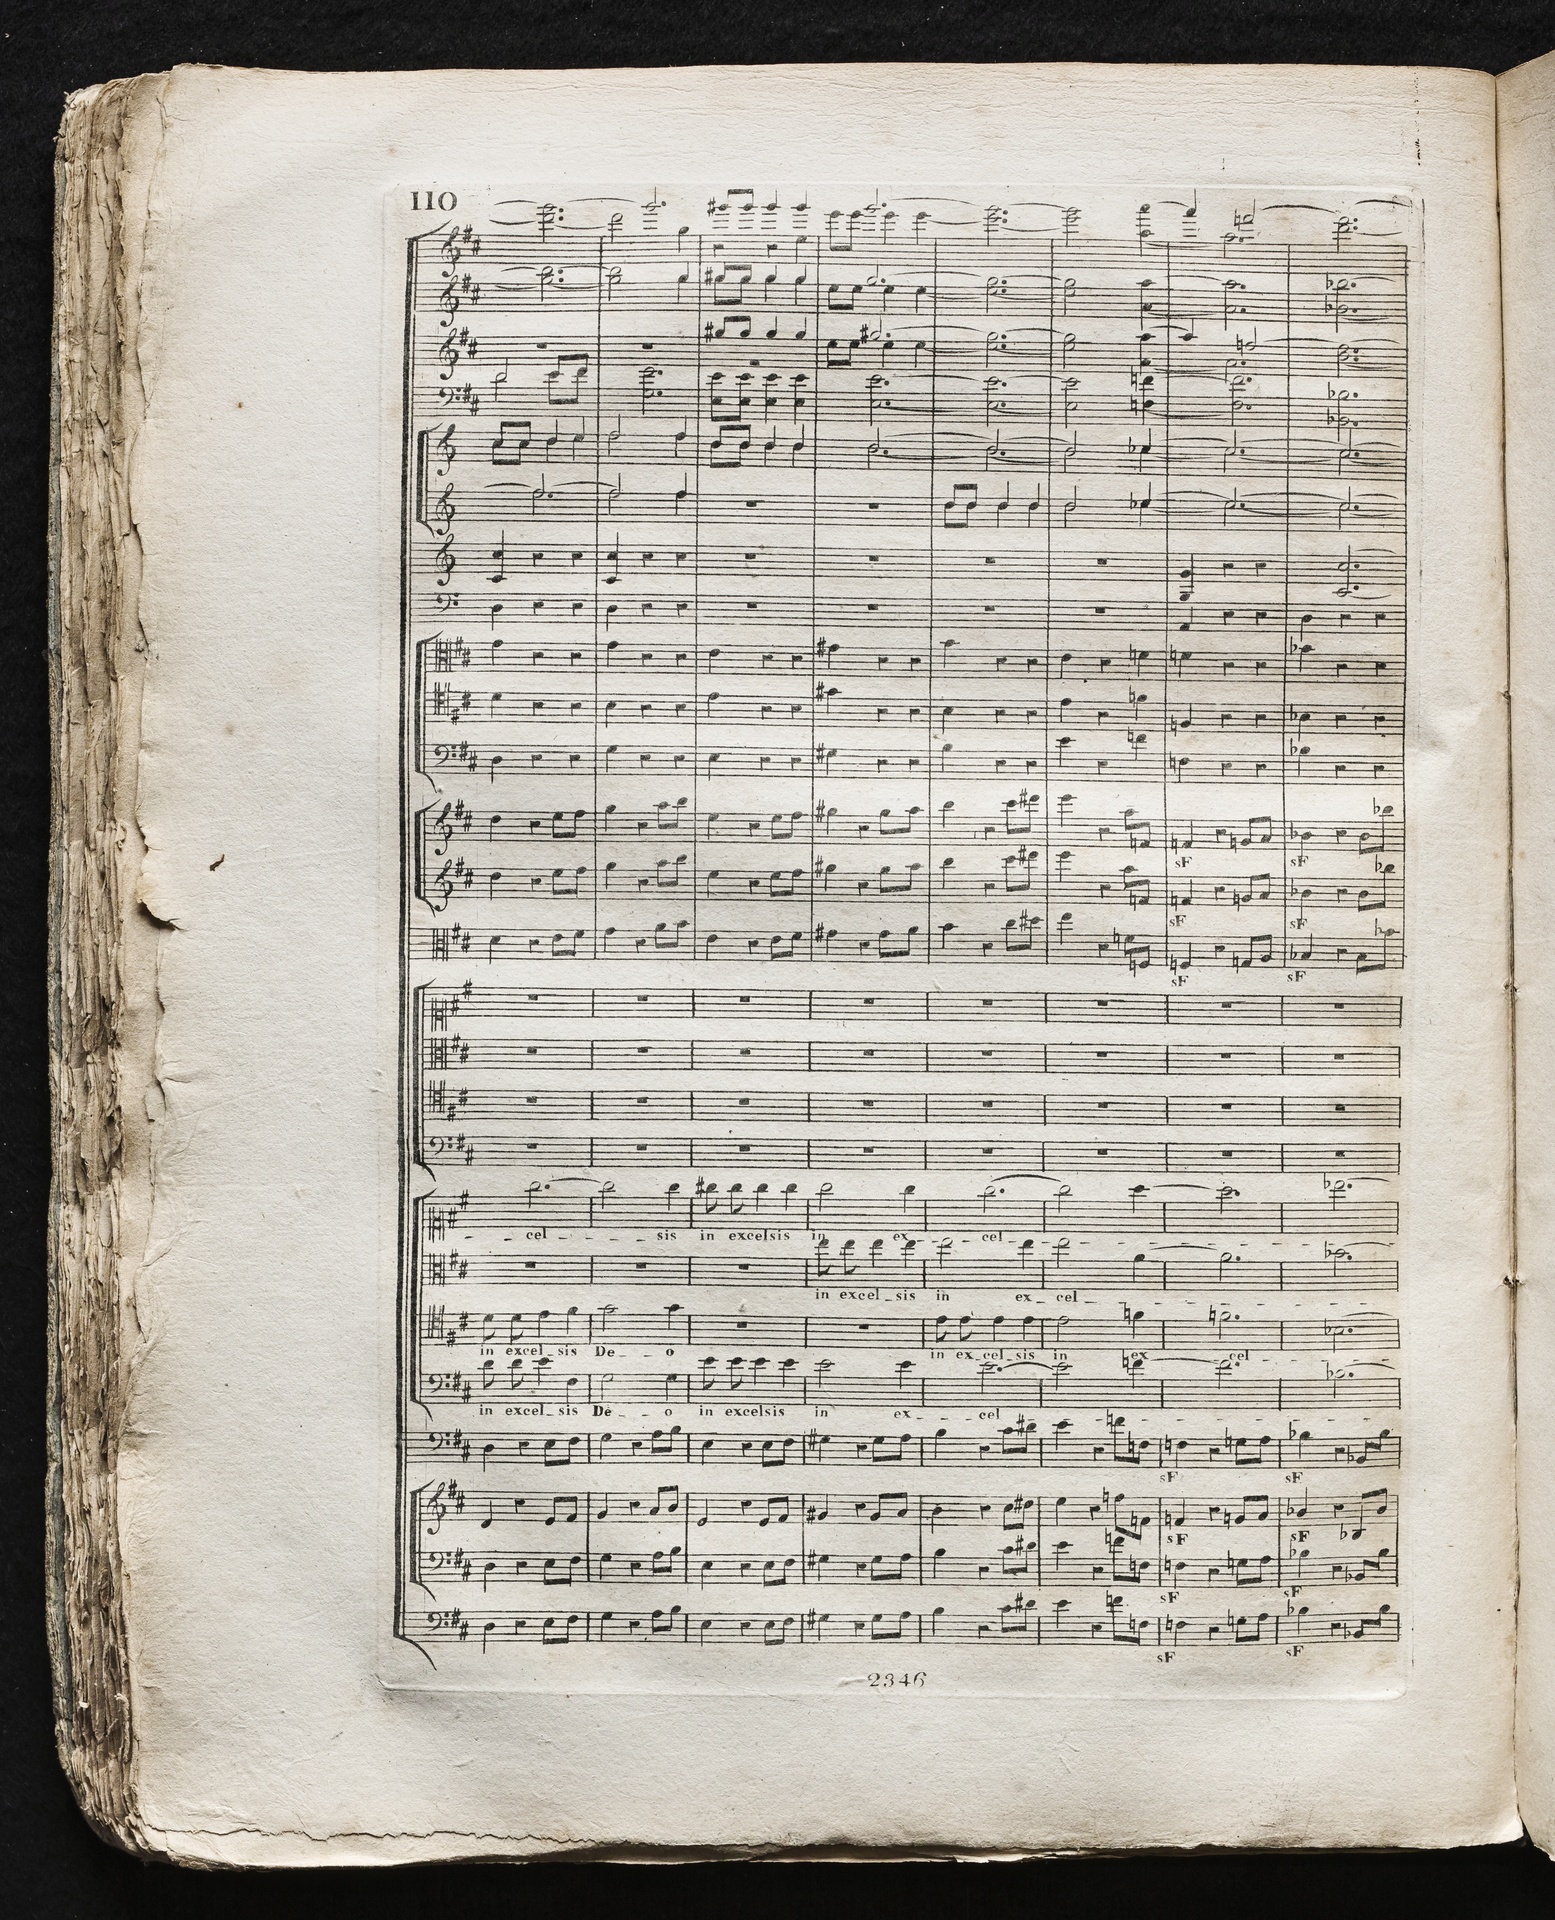 110
sF sF
sF sF
sF sF
cel - - - sis in excelsis in ex - - cel
in excel_sis in ex_ cel
in excel_sis De_ _ o in ex_cel_sis in ex cel
in excel_sis De_ _ o in excelsis in ex_ _ _ cel
sF sF
sF sF
sF sF
sF sF
2346